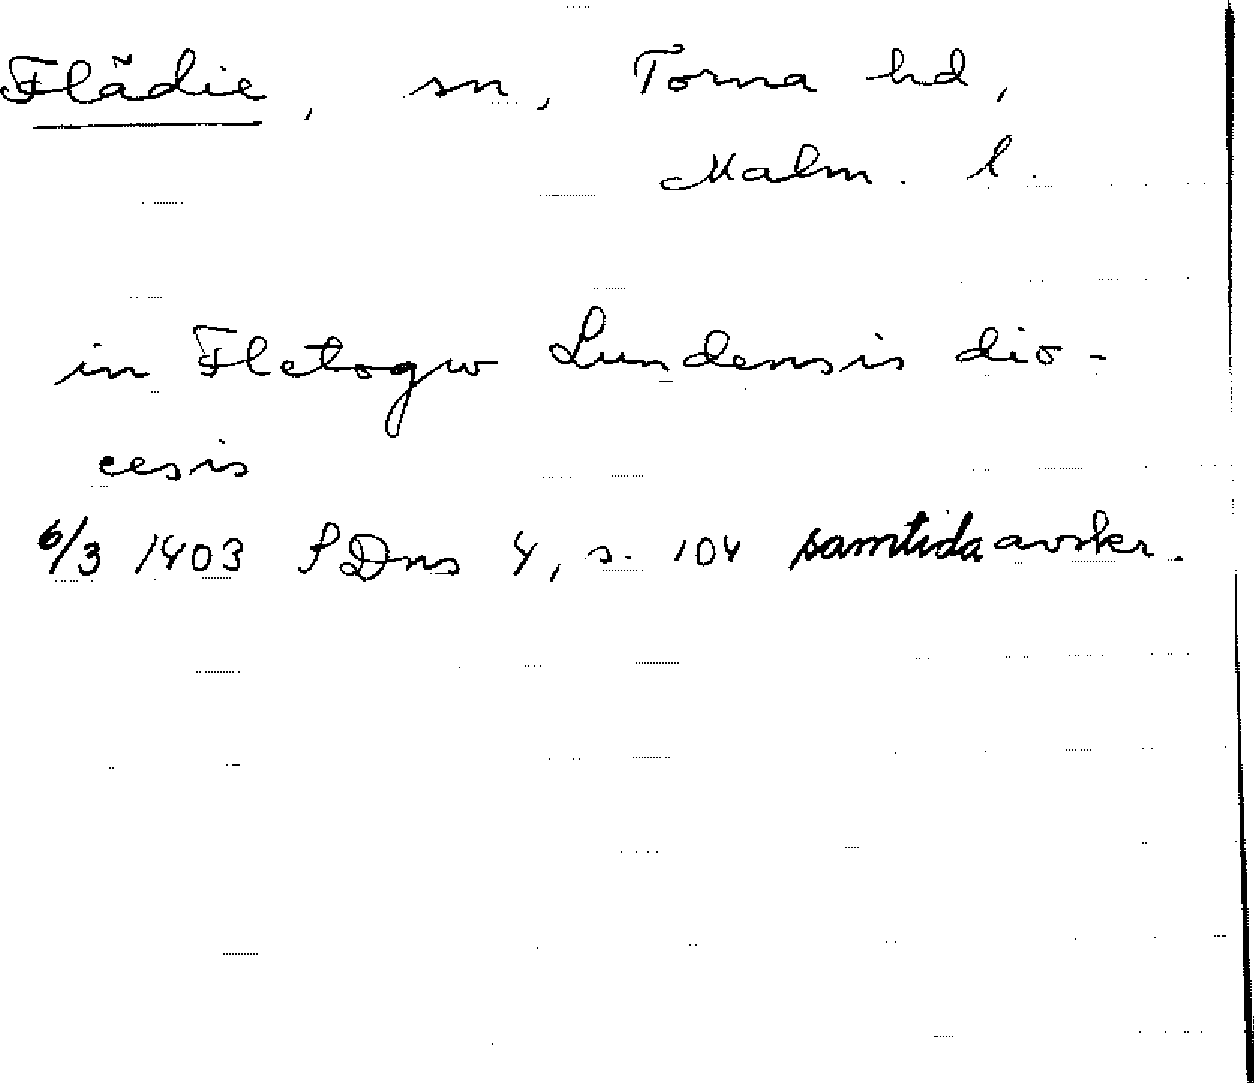 Flädie, sn, Torna hd,
Malm. l.
in Fletogw Lundensis dio-
cesis
6/3 1403 SDns 4, s. 104 samtida avskr.